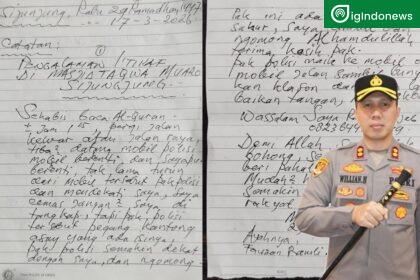 Sijunjung, Rabu 29 Ramadhan 1447
17-3-2026
Catatan:
①
PENGALAMAN I'TIKAF
DI MASJID TAQWA MUARO
SIJUNJUNG.
Sehabis baca Al-Quran
± Jam 1 15 pergi jalan
keluar atau jalan raya,
tiba² datang mobil polisi
mobil berenti, dan sayapun
berenti, tak lama turun
dari mobil tersebut pak polisi
dan mendekati saya, saya
cemas jangan² saya di
tangkap, tapi pak polisi
tersebut pegang kantong
asoy yang ada isinya,
pak polisi semakin dekat
dengan saya, dan ngomong
Pak ini ada
sahur, saya
ngomong Alhamdulillah
terima kasih pak.
pak polisi naik ke mobil
mobil jalan sambil
kan klafon dan
baikan tangan,
Wassalam saya
0823644
Demi Allah, s
bohong, se
beri pahal
Mudah²
Semakin
rakyat
Ayahnya,
IgIndonews
WILLIAN.H
POLRI